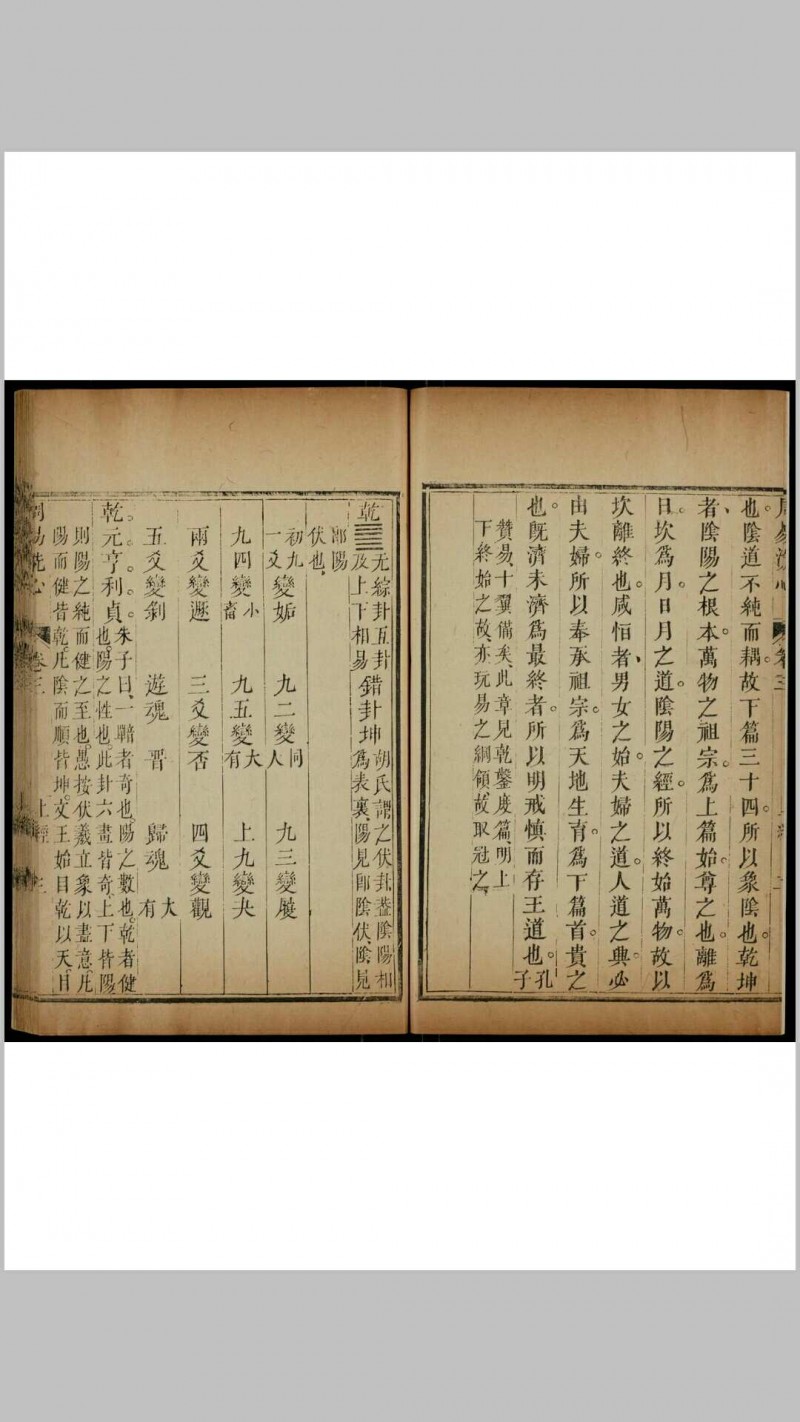 周易洗心 卷三
也陰道不純而耦。故下篇三十四。所以象陰也。乾坤
者、陰陽之根本。萬物之祖宗。爲上篇始。尊之也。離爲
日。坎爲月。日月之道。陰陽之經。所以終始萬物。故以
坎離終也。咸恒者、男女之始。夫婦之道。人道之興。必
由夫婦。所以奉承祖宗。爲天地生育。爲下篇首。貴之
也。旣濟未濟爲最終者。所以明戒慎而存王道也。孔子
贊易、十翼備矣、此章見乾鑿度篇、明上
下終始之故、亦玩易之綱領、故取冠之、
乾 无綜卦五卦
及上下相易
錯卦坤 胡氏謂之伏卦葢陰陽相
爲表裏、陽見卽陰伏、陰見
卽陽
伏也、
初九
一爻變姤 九二變同人 九三變履
九四變小畜 九五變大有 上九變夬
兩爻變遯 三爻變否 四爻變觀
五爻變剝 遊魂 晋 歸魂 大有
乾。元。亨。利。貞。朱子曰、一者奇也、陽之數也。乾者健
也、陽之性也、此卦六畫皆奇、上下皆陽
則陽之純而健之至也。愚按伏羲立象以盡意、凡
陽而健皆乾。凡陰而順皆坤。文王始目乾以天、目
周易洗心 卷三 上經